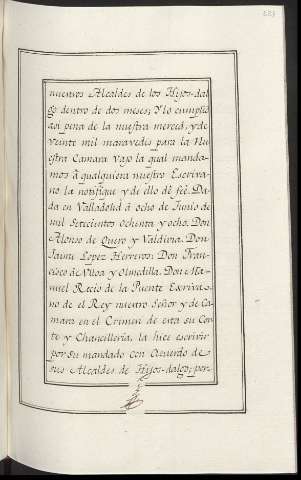 nuestros Alcaldes de los Hijos-dal
go dentro de dos meses; Y lo cumplid
asi pena de la nuestra merced, y de
veinte mil maravedis para la Nu
estra Camara vajo la qual manda-
mos á qualquiera nuestro Escriva-
no la notifique y de ello dé feé. Da
da en Valladolid á ocho de Junio de
mil Setecientos ochenta y ocho. Don
Alonso de Quero y Valdivia. Don
Jaime Lopez Herreros. Don Fran-
cisco de Ulloa y Olmedilla. Don Ma-
nuel Recio de la Puente Escriva-
no de el Rey nuestro Señor y de Ca-
mara en el Crimen de esta su Cor-
te y Chancilleria, la hice escrivir
por su mandado con Acuerdo de
sus Alcaldes de Hijos-dalgo; por